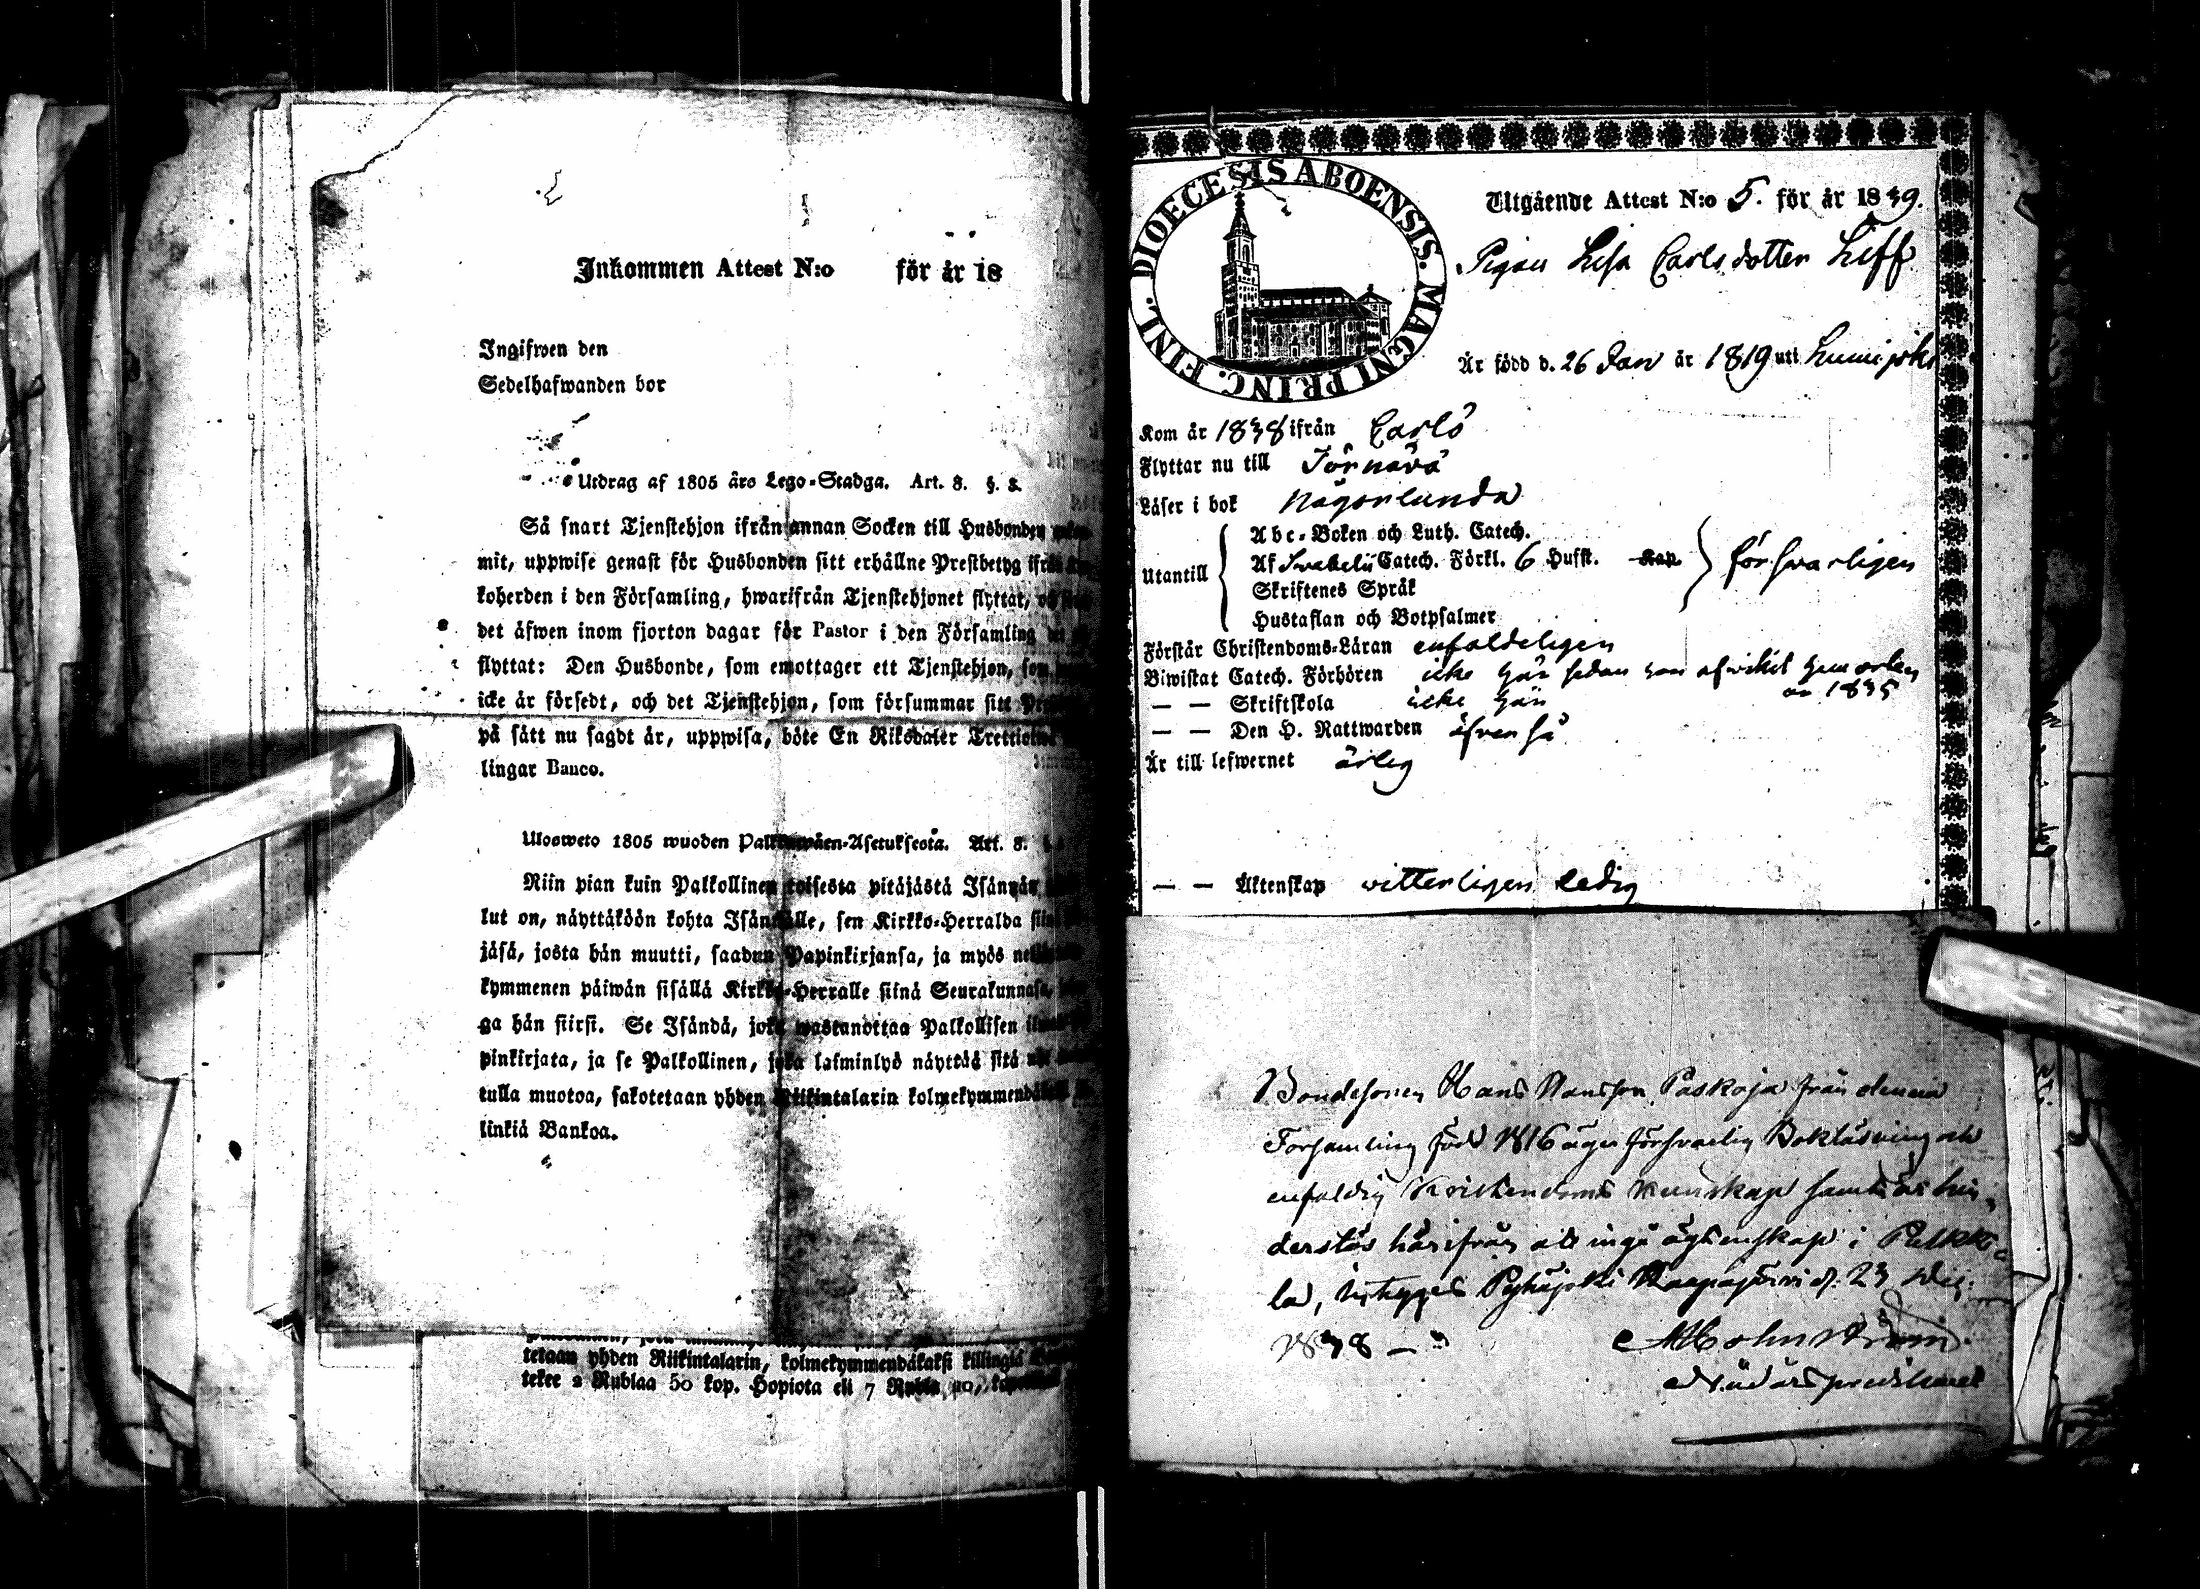 Inkommen Attest N:o för år 18
Ingifwen den
Sedelhafwanden bor
Utdrag af 1805 års Lego-Stadga. Art. 8. §. 8.
Så snart Tjenstehjon ifrån annan Socken till Husbonden
mit, uppwise genast för Husbonden sitt erhållne Prestbetyg ifrån
koherden i den Församling, hwarifrån Tjenstehjonet flyttat,
det äfwen inom fjorton dagar för Pastor i den Församling
flyttat: Den Husbonde, som emottager ett Tjenstehjon, som
icke är försedt, och det Tjenstehjon, som försummar sitt
på sätt nu sagdt är, uppwisa, böte En Riksdaler
lingar Banco.
Ulosweto 1805 wuoden Palkkawäen-Asetuksesta. Art. 8.
Niin pian kuin Palkollinen toisesta pitäjästä Isännän
lut on, näyttäköön kohta Isännälle, sen Kirkko-Herralda
jäsä, josta hän muutti, saadun Papinkirjansa, ja myös
kymmenen päiwän sisällä Kirkko-Herralle siinä Seurakunnasa,
ga hän siirsi. Se Isändä, joka wastanottaa Palkollisen
pinkirjata, ja se Palkollinen, joka laiminlyö näyttää sitä
tulla muotoa, sakotetaan yhden Riikintalarin
linkiä Bankoa.
tetaan yhden Riikintalarin, kolmekymmendäkaksi killingiä
tekee 2 Rublaa 50 kop. Hopiota eli 7
DIOECESIS ABOENSIS. MAGNI PRINC. FINL.
Utgående Attest N:o 5. för år 1839.
Pigan Lisa Carlsdotter Liff
Är född d. 26 Jan år 1819 uti Lumijoki
Kom år 1838 ifrån Carlö
Flyttar nu till Törnävä
Läser i bok någorlunda
Utantill
Abc-Boken och Luth. Catech.
Af Svebelii Catech. Förkl. 6 Hufst. Kap.
Skriftenes Språk
Hustaflan och Botpsalmer
försvarligen
Förstår Christendoms-Läran enfaldeligen
Biwistat Catech. Förhören icke här sedan hon afvikit hemorten
år 1835
— — Skriftskola icke här
— — Den H. Nattwarden äfven så
Är till lefwernet ärlig
— — Äktenskap vitterligen ledig
Bondesonen Hans Hansson Paskoja från denna
Församling född 1816 äger försvarlig Bokläsning och
enfaldig Kristendoms kunskap samt är hin-
derslös härifrån att ingå ägtenskap i Pulkki-
la, intygas Pyhäjoki d. 23 Dec.
1838